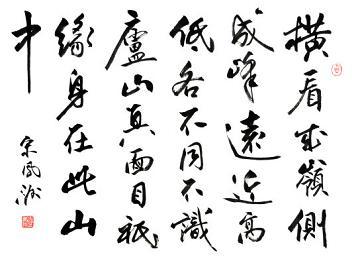 橫看成嶺側
成峰遠近高
低各不同不識
廬山真面目祇
緣身在此山
中